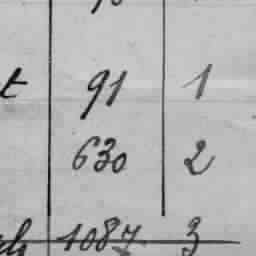 t 91 1
630 2
1087 3